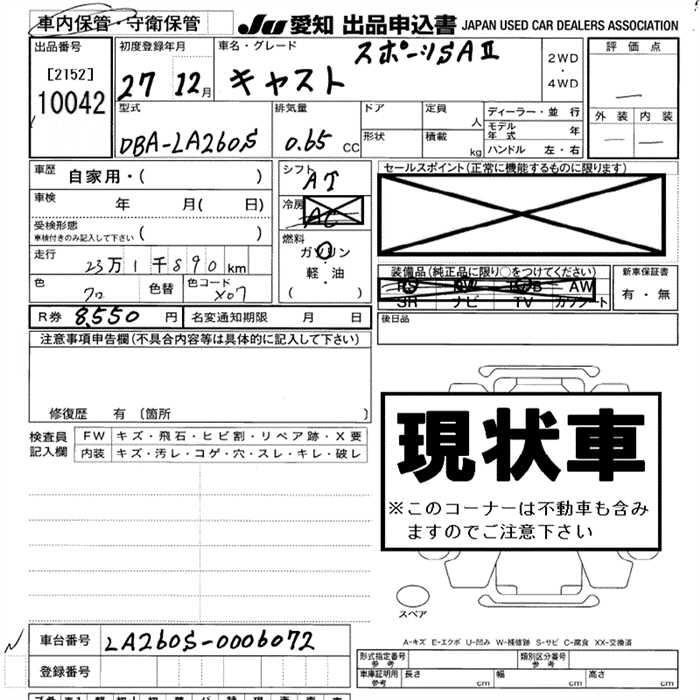 車内保管・守衛保管
JU 愛知 出品申込書 JAPAN USED CAR DEALERS ASSOCIATION
出品番号
[2152]
10042
初度登録年月
27 12月
車名・グレード
キャスト スポーツSAⅡ
2WD
・
4WD
評価点
外装 内装
型式
DBA-LA260S
排気量
0.65 CC
ドア
形状
定員 人
積載 kg
ディーラー・並行
モデル年式 年
ハンドル 左・右
車歴 自家用・( )
車検 年 月( 日)
受検形態
車検付きのみ記入して下さい ( )
走行 23万1千890km
色 クロ 色替 色コード X07
シフト
AT
冷房
AC
燃料
ガソリン
軽・油
( )
セールスポイント(正常に機能するものに限ります)
装備品(純正品に限り○をつけてください)
PS PW AW
SR ナビ TV カワシート
新車保証書
有・無
R券 8,550 円 名変通知期限 月 日
後日品
注意事項申告欄(不具合内容等は具体的に記入して下さい)
修復歴 有 〔箇所 〕
検査員
記入欄
FW キズ・飛石・ヒビ割・リペア跡・X要
内装 キズ・汚レ・コゲ・穴・スレ・キレ・破レ
現状車
※このコーナーは不動車も含み
ますのでご注意下さい
スペア
A-キズ E-エクボ U-凹み W-補修跡 S-サビ C-腐食 XX-交換済
車台番号 LA260S-0006072
登録番号
形式指定番号
参考
類別区分番号
参考
車庫証明用
参考
長さ cm 幅 cm 高さ cm